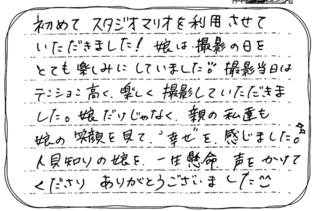 初めて スタジオマリオを利用させて
いただきました!娘は撮影の日を
とても楽しみにしていました。撮影当日は
テンション高く、楽しく撮影していただきま
した。娘だけじゃなく、親の私達も
娘の笑顔を見て、幸せを感じました。
人見知りの娘を、一生懸命、声をかけて
くださり ありがとうございました